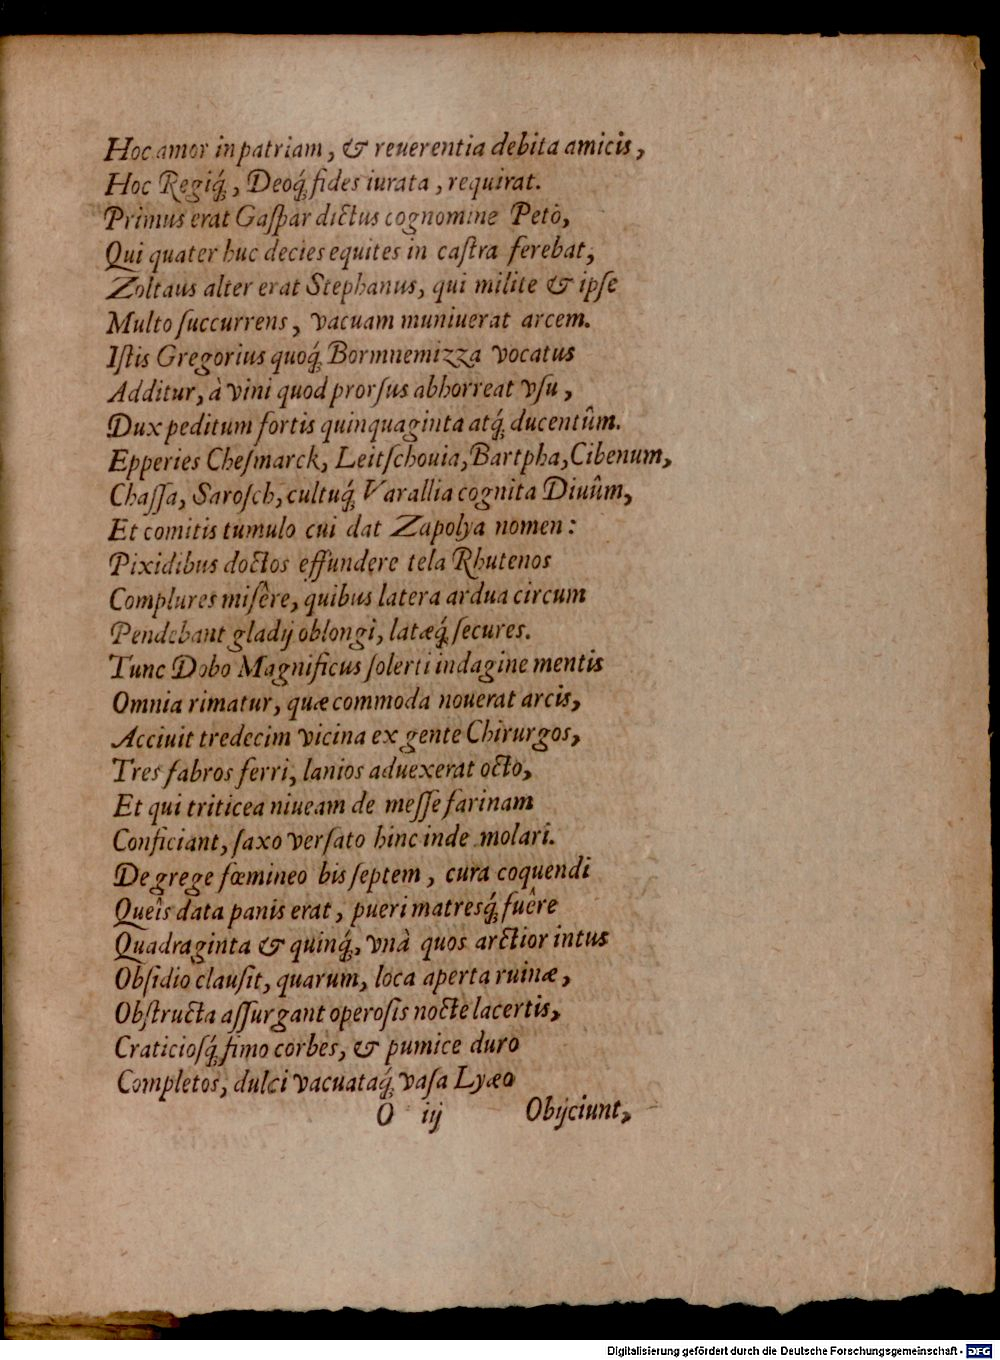 Hoc amor in patriam, & reuerentia debita amicis,
Hoc Regiq́;, Deoq́; fides iurata, requirat.
Primus erat Gaſpar dictus cognomine Petò,
Qui quater huc decies equites in caſtra ferebat,
Zoltaus alter erat Stephanus, qui milite & ipſe
Multo ſuccurrens, vacuam muniuerat arcem.
Iſtis Gregorius quoq́; Bormnemizza vocatus
Additur, à vini quod prorſus abhorreat vſu,
Dux peditum fortis quinquaginta atq́; ducentûm.
Epperies Cheſmarck, Leitſchouia, Bartpha, Cibenum,
Chaſſa, Saroſch, cultuq́; Varallia cognita Diuûm,
Et comitis tumulo cui dat Zapolya nomen:
Pixidibus doctos effundere tela Rhutenos
Complures miſêre, quibus latera ardua circum
Pendebant gladij oblongi, latæq́; ſecures.
Tunc Dobo Magnificus ſolerti indagine mentis
Omnia rimatur, quæ commoda nouerat arcis,
Acciuit tredecim vicina ex gente Chirurgos,
Tres fabros ferri, lanios aduexerat octo,
Et qui triticea niueam de meſſe farinam
Conficiant, ſaxo verſato hinc inde molari.
De grege fœmineo bis ſeptem, cura coquendi
Queîs data panis erat, pueri matresq́; fuêre
Quadraginta & quinq́;, vnà quos arctior intus
Obſidio clauſit, quarum, loca aperta ruinæ,
Obſtructa aſſurgant operoſis nocte lacertis,
Craticioſq́; fimo corbes, & pumice duro
Completos, dulci vacuataq́; vaſa Lyæo
O iij Obijciunt,
Digitalisierung gefördert durch die Deutsche Forschungsgemeinschaft - DFG